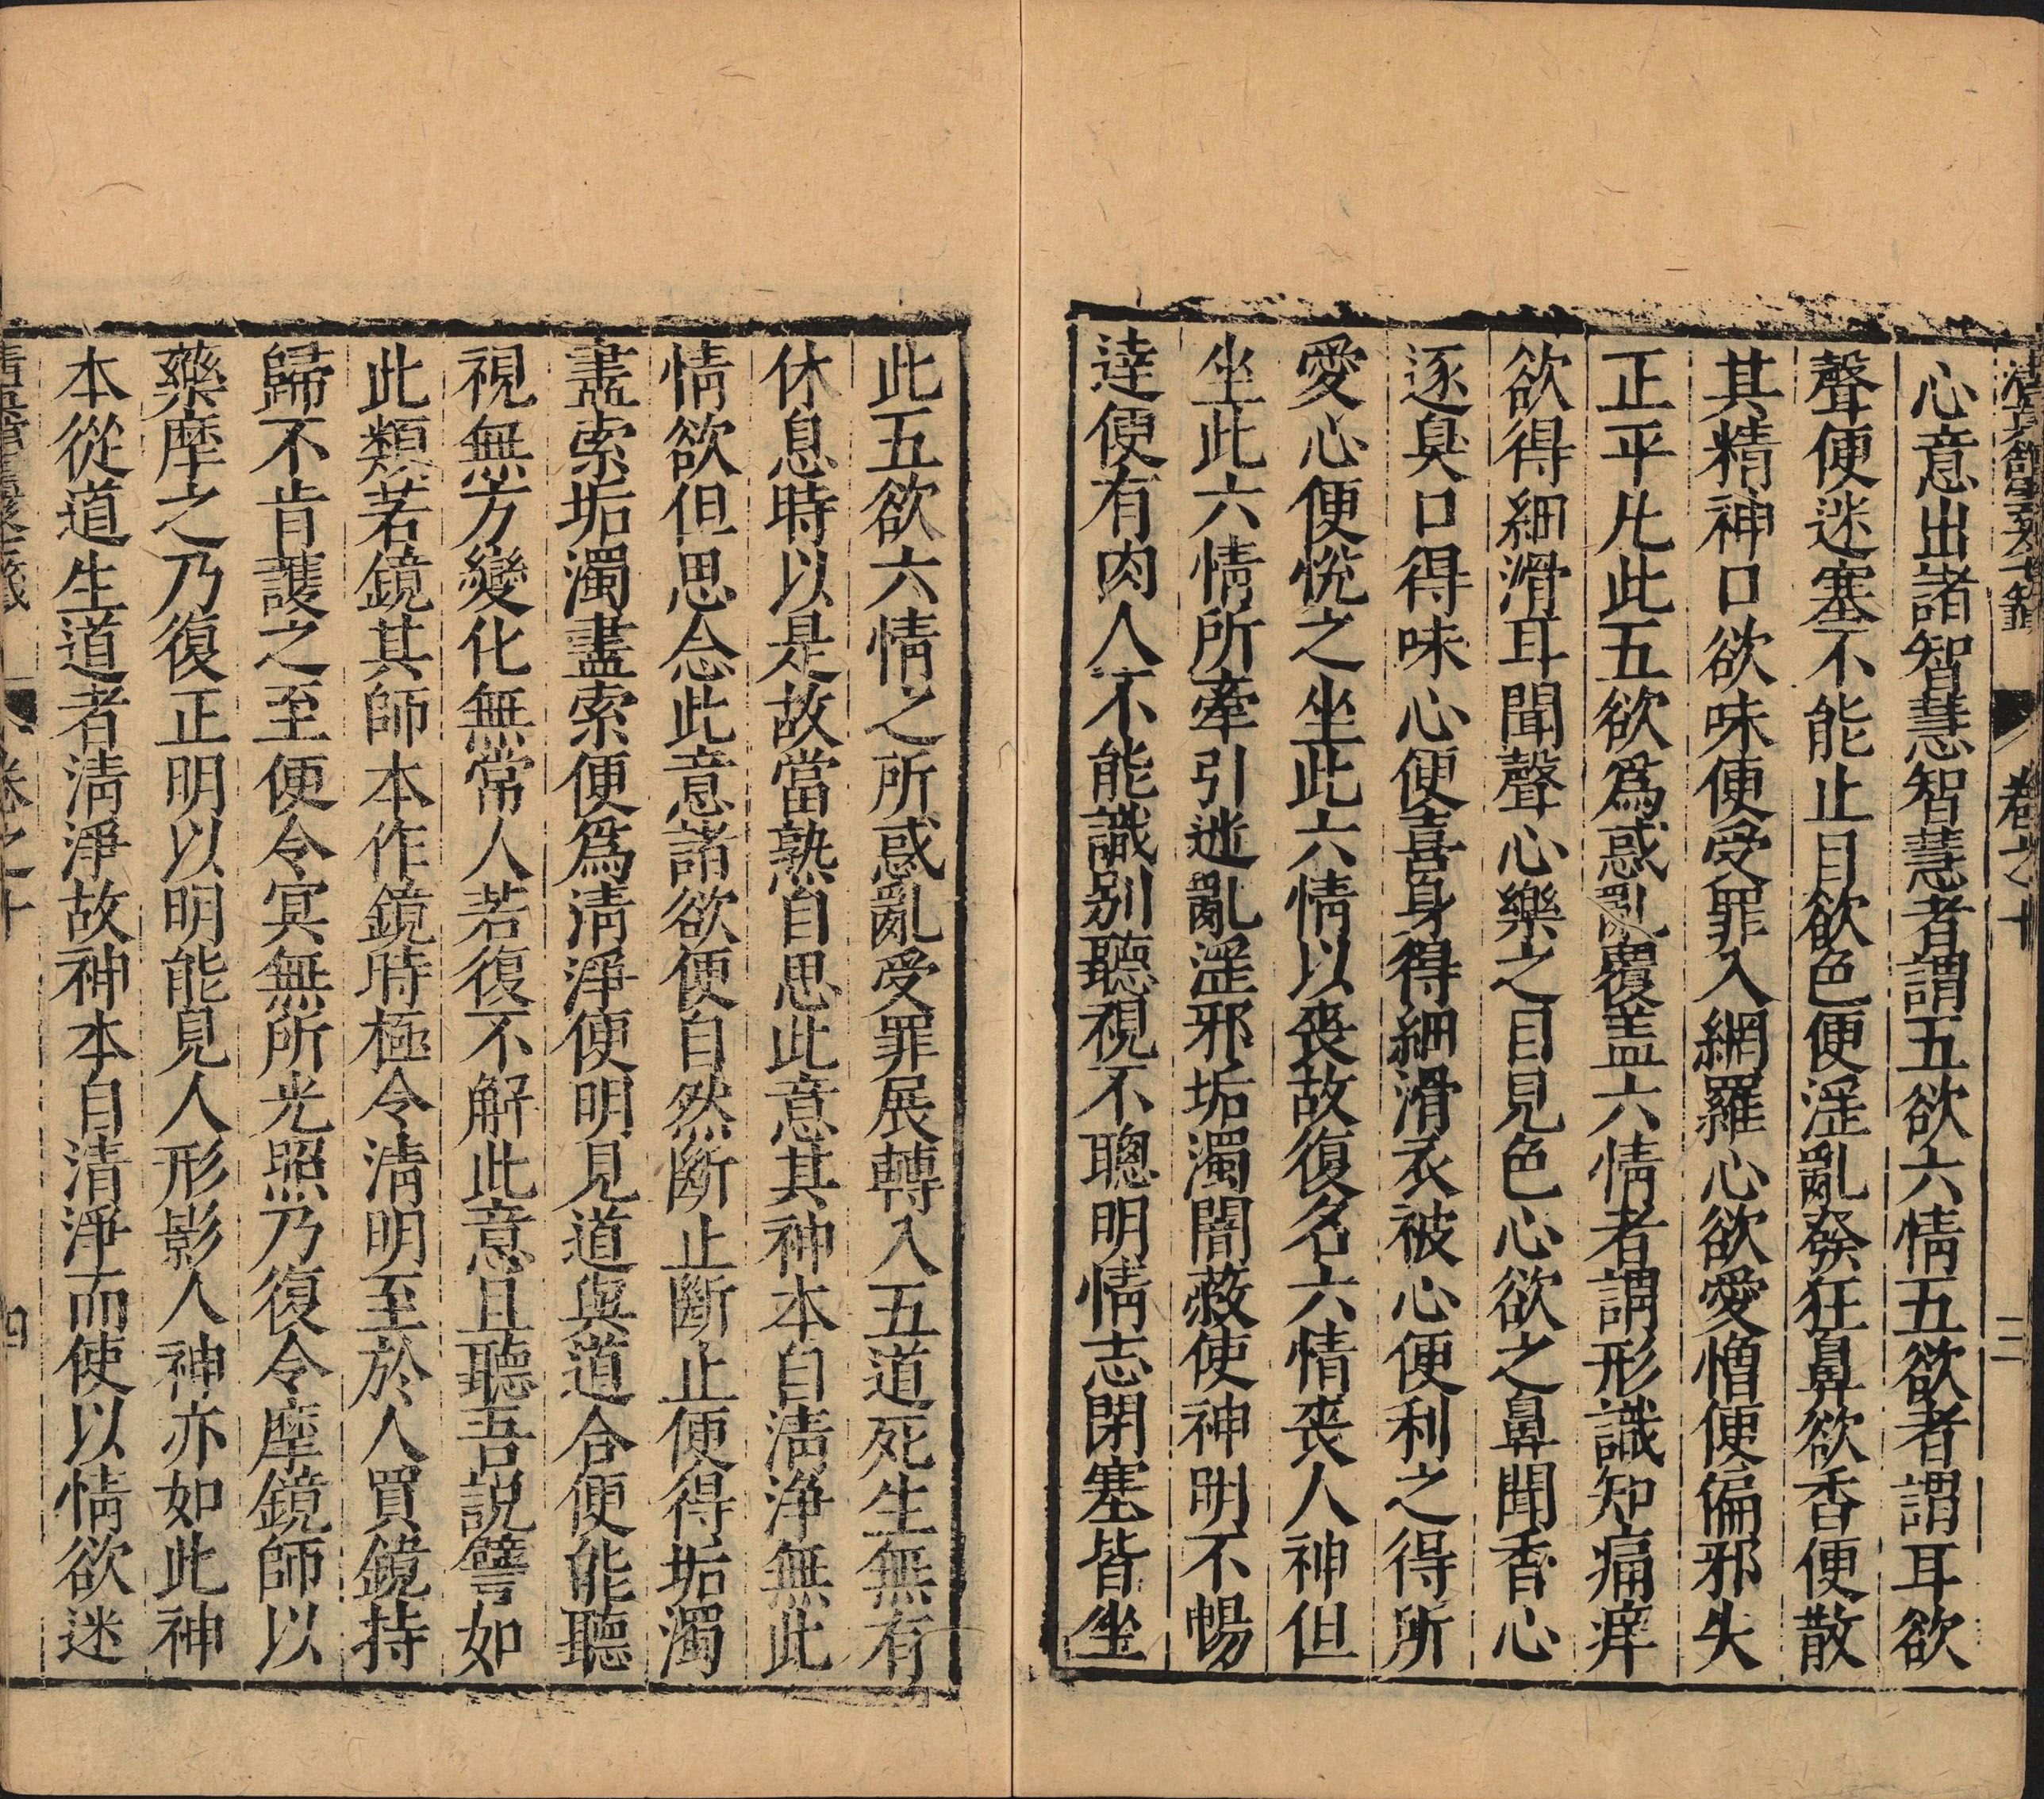 心意出諸智慧智慧者謂五欲六情五欲者謂耳欲
聲便迷塞不能止目欲色便淫亂發狂鼻欲香便散
其精神口欲味便受罪入網羅心欲愛憎便偏邪失
正平凡此五欲爲惑亂覆盖六情者謂形識知痛痒
欲得細滑耳聞聲心樂之目見色心欲之鼻聞香心
逐臭口得味心便喜身得細滑衣被心便利之得所
愛心便悅之坐此六情以丧故復名六情丧人神但
坐此六情所牽引迷亂淫邪垢濁闇蔽使神明不暢
達便有肉人不能識別聽視不聰明情志閉塞皆坐
此五欲六情之所惑亂受罪展轉入五道死生無有
休息時以是故當熟自思此意其神本自清淨無此
情欲但思念此意諸欲便自然斷止斷止便得垢濁
盡索垢濁盡索便爲清淨便明見道與道合便能聽
視無方變化無常人若復不解此意且聽吾説譬如
此類若鏡其師本作鏡時極令清明至於人買鏡持
歸不肯護之至便令冥無所光照乃復令摩鏡師以
藥摩之乃復正明以明能見人形影人神亦如此神
本從道生道者清淨故神本自清淨而使以情欲迷
卷之十
四